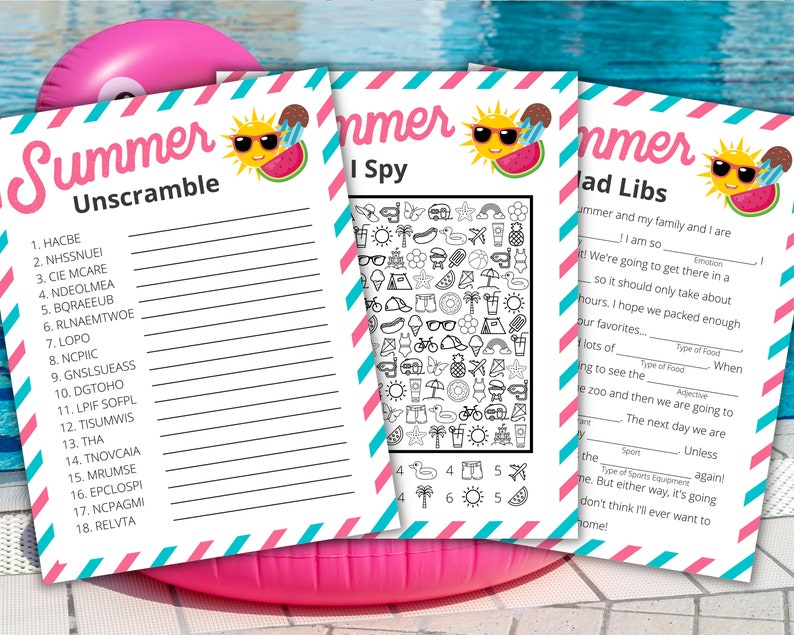 Summer
Unscramble
1. HACBE
2. NHSSNUEI
3. CIE MCARE
4. NDEOLMEA
5. BQRAEEUB
6. RLNAEMTWOE
7. LOPO
8. NCPIIC
9. GNSLSUEASS
10. DGTOHO
11. LPIF SOFPL
12. TISUMWIS
13. THA
14. TNOVCAIA
15. MRUMSE
16. EPCLOSPI
17. NCPAGMI
18. RELVTA
mmer
I Spy
4 4 5
4 6 5
mmer
ad Libs
ummer and my family and I are
! I am so , I
Emotion
it! We're going to get there in a
so it should only take about
hours. I hope we packed enough
our favorites...
Type of Food
d lots of . When
Type of Food
ing to see the
Adjective
e zoo and then we are going to
rant
. The next day we are
y . Unless
Sport
s the again!
Type of Sports Equipment
me. But either way, it's going
don't think I'll ever want to
home!